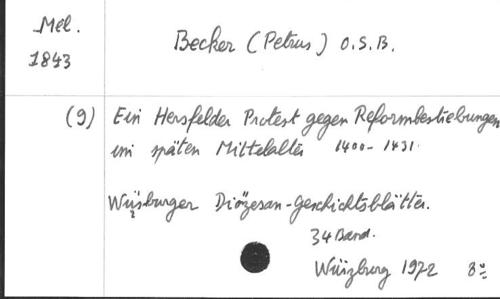 Mel.
1843
Becker (Petrus) O.S.B.
(9) Ein Hersfelder Protest gegen Reformbestiebungen
im späten Mittelalter 1400-1431.
Würzburger Diözesan-Geschichtsblätter.
34 Band.
Würzburg 1972 8º